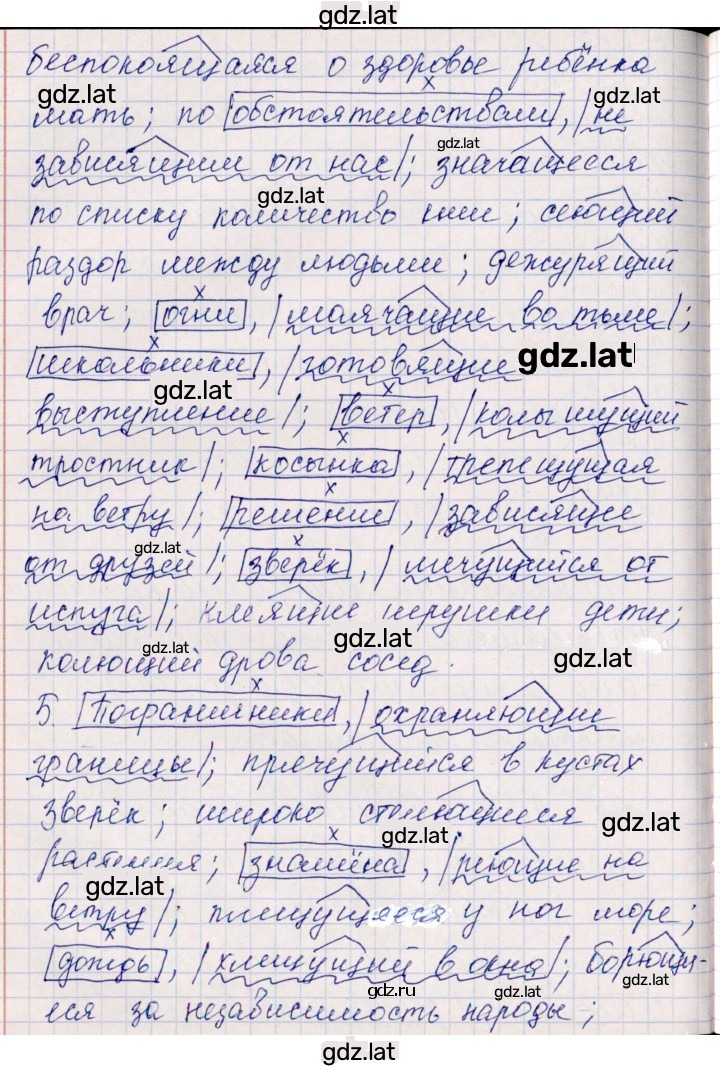 gdz.lat
беспокоящаяся о здоровье ребёнка
gdz.lat
мать; по обстоятельствам, /не
gdz.lat
gdz.lat
зависящим от нас/; значащееся
gdz.lat
по списку количество книг; сеющий
раздор между людьми; дежурящий
врач; огни, /маячащие во тьме/;
школьники, /готовящие
gdz.lat
gdz.lat
выступление/; ветер, /колышущий
тростник/; косынка, /трепещущая
на ветру/; решение, /зависящее
gdz.lat
от друзей/; зверёк, /мечущийся от
испуга/; клеящие игрушки дети;
gdz.lat
gdz.lat
gdz.lat
колющий дрова сосед.
5. Пограничники, /охраняющие
границы/; прячущийся в кустах
зверёк; широко стелющиеся
gdz.lat
gdz.lat
растения; знамёна, /реющие на
gdz.lat
ветру/; плещущееся у ног море;
дождь, /хлещущий в окна/; борющи-
gdz.ru
gdz.lat
еся за независимость народы;
gdz.lat